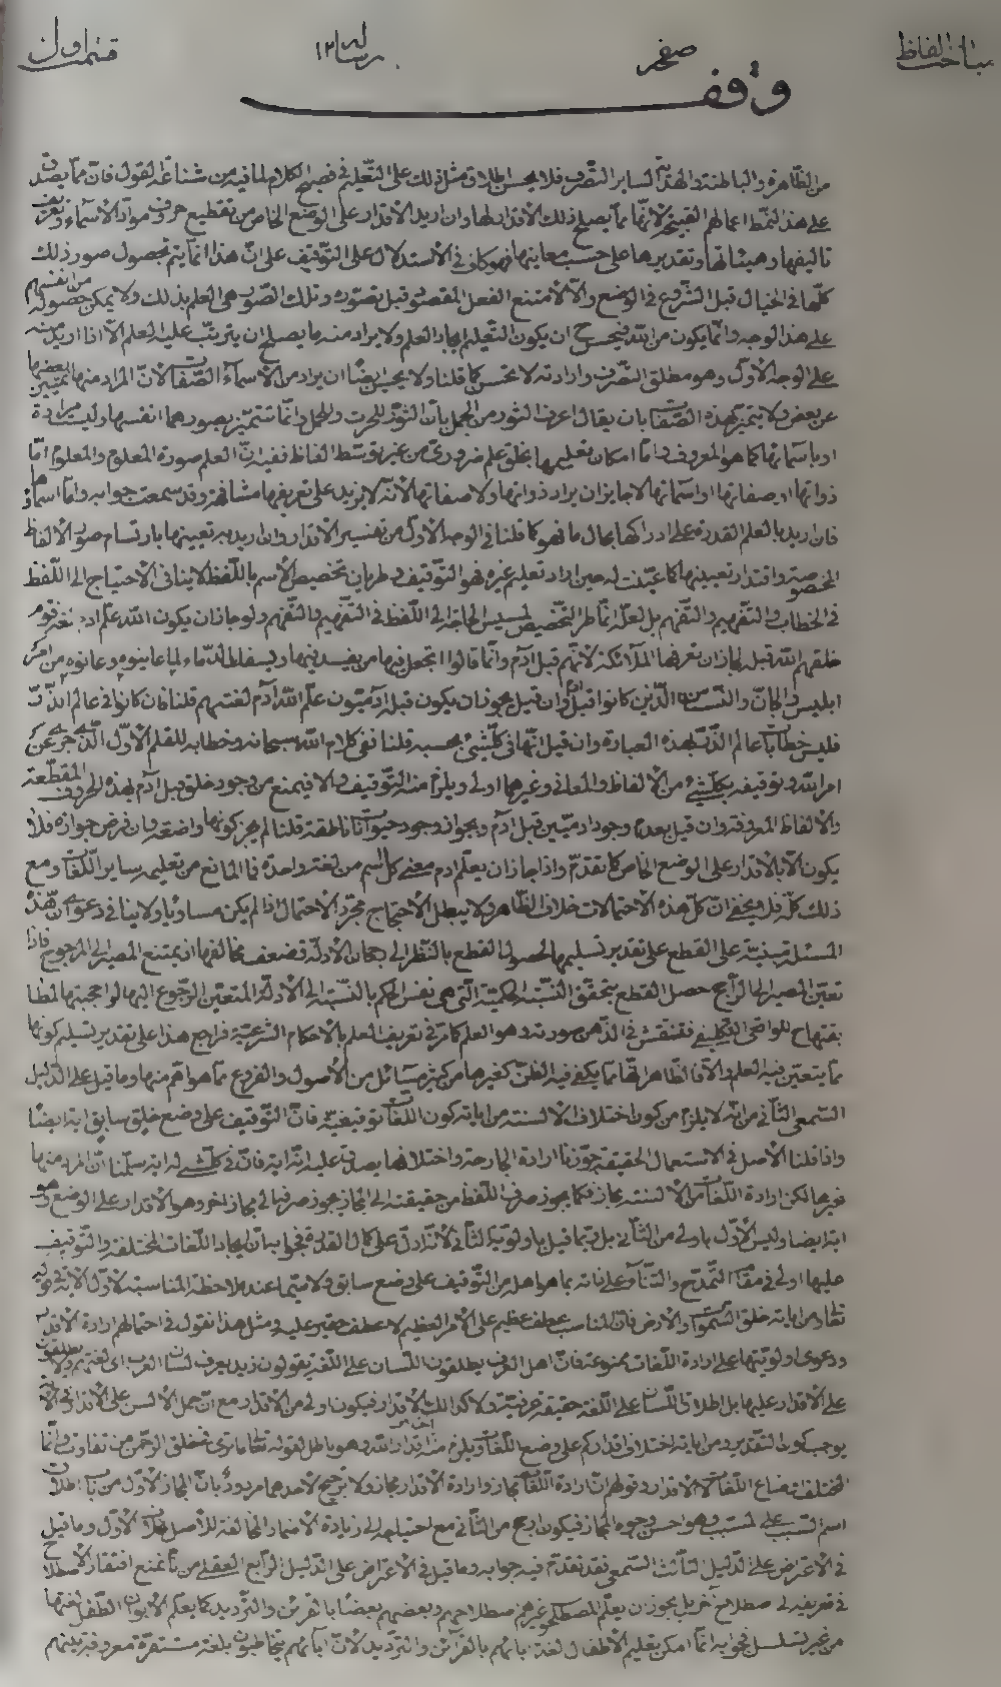 مباحث الفاظ صفحه رساله ١٢ قسمت اول
وقف
من الظاهرة والباطنة والهداية لساير التصرف فلا يحسن اطلاق مثل ذلك على التعليم في فصيح الكلام لما فيه من شناعة القول فان مما يصدق
على هذا النمط اعمالهم القبيحة لانها مما يصلح ذلك الاقدار لها وان اريد الاقدار على الوضع الخاص من تقطيع حروف مواد الاسماء وتعريف
تاليفها وهيئاتها وتقديرها على حسب معانيها فهو كاف في الاستدلال على التوقيف على ان هذا انما يتم بحصول صور ذلك
كلها في الخيال قبل الشروع في الوضع والا لامتنع الفعل المقصود قبل تصوره وتلك الصور هي العلم بذلك ولا يمكن حصوله من انفسهم
على هذا الوجه وانما يكون من الله فيحسن ح ان يكون التعليم ايجاد العلم ولا يراد منه ما يصلح ان يترتب عليه العلم الا اذا اريد به
على الوجه الاول وهو مطلق التصرف وارادته لا تحسن كما قلنا ولا يحسن ايضا ان يراد من الاسماء الصفات لان المراد منها تمييز بعضها
عن بعض ولا يتميز بهذه الصفات بان يقال اعرف الثور من الجمل بان الثور للحرث والجمل وانما تتميز بصورهما انفسها وليست مرادة
او باسمائها كما هو المعروف واما امكان تعليمها بخلق علم ضروري من غير توسط الفاظ ففيه ان العلم صورة المعلوم والمعلوم اما
ذواتها او صفاتها او اسمائها لا جايز ان يراد ذواتها ولا صفاتها لانه لا يزيد على تعريفها مشافهة وقد سمعت جوابه واما اسماؤها
فان اريد بالعلم القدرة على ادراكها بحال ما فهو كما قلنا في الوجه الاول من تفسير الاقدار وان اريد به تعيينها بارتسام صور الالفاظ
المخصوصة واقتدار تعيينها كما عينت له حين اراد تعليم غيره فهو التوقيف وطريان تخصيص الاسم باللفظ لا ينافي الاحتياج الى اللفظ
في الخطاب والتفهيم والتفهم بل لعله انما طرء التخصيص لمسيس الحاجة الى اللفظ في التفهيم والتفهم ولو جاز ان يكون الله علم ادم لغة قوم
خلقهم الله قبله لجاز ان تعرفها الملائكة لانهم قبل ادم وانما قالوا اتجعل فيها من يفسد فيها ويسفك الدماء لما عاينوه وعانوه من امر
ابليس والجان والنسناس الذين كانوا قبل ادم وان قيل يجوز ان يكون قبله ادميون علم الله ادم لغتهم قلنا فان كانوا في عالم الذر
فليس خطابات عالم الذر بهذه العبارة وان قيل انها في كلشئ بحسبه قلنا ففي كلام الله سبحانه وخطابه للقلم الاول الذي جرى عن
امر الله وتوقيفه بكلشئ من الالفاظ والمعاني وغيرهما اولى ويلزم منه التوقيف والا فيمنع من وجود خلق قبل ادم بهذه الحروف المقطعة
والالفاظ المعروفة وان قيل بعدم وجود ادميين قبل ادم وبجواز وجود حيوانات ناطقة قلنا لم يجز كونها واضعة وان فرض جوازه فلا
يكون الا بالاقدار على الوضع الخاص كما تقدم واذا جاز ان يعلم ادم معنى كل اسم من لغة واحدة فما المانع من تعليمه ساير اللغات ومع
ذلك كله فلا يخفى ان كل هذه الاحتمالات خلاف الظاهر ولا يبطل الاحتجاج مجرد الاحتمال اذا لم يكن مساويا ولا ينافي دعوى ان هذه
المسئلة مبنية على القطع على تقدير تسليمها لحصول القطع بالنظر الى رجحان الادلة فضعف مخالفها اذ يمتنع المصير الى المرجوح فاذا
تعين المصير الى الراجح حصل القطع بتحقق النسبة الحكمية التي هي نفس الحكم بالنسبة الى الادلة المتعين الرجوع اليها لواجبيتها لمطا
بقتها ح للواقعي التكليفي فتنتقش في الذهن صورته وهو العلم كما مر في تعريف العلم بالاحكام الشرعية فراجع هذا على تقدير تسليم كونها
مما يتعين فيه العلم والا فالظاهر انها مما يكفي فيه الظن كغيرها من كثير مسائل من الاصول والفروع مما هو اهم منها وما قيل على الدليل
السمعي الثاني من انه لا يلزم من كون اختلاف الالسنة من اياته كون اللغات توقيفية فان التوقيف على وضع خلق سابق اية ايضا
واذا قلنا الاصل في الاستعمال الحقيقة جوزنا ارادة الجارحة واختلافها يصدق عليه انه اية فان في كلشئ له اية سلمنا ان المراد منها
غيرها لكن ارادة اللغات من الالسنة مجاز فكما يجوز صرف اللفظ من حقيقته الى المجاز يجوز صرفها الى مجاز اخر وهو الاقدار على الوضع وهو
اية ايضا وليس الاول باولى من الثاني بل ربما قيل باولوية الثاني لانه ادل على كمال القدرة فجوابه ان ايجاد اللغات المختلفة والتوقيف
عليها اولى في مقام التمدح والثناء على ذاته بما هو اهله من التوقيف على وضع سابق ولا سيما عند ملاحظة المناسبة لاول الاية في قوله
تعالى ومن اياته خلق السموات والارض فان المناسب عطف عظيم على الامر العظيم لا عطف حقير عليه ومثل هذا نقول في احتمالهم ارادة الاقدار
ودعوى اولويتها على ارادة اللغات ممنوعة فان اهل العرف يطلقون اللسان على اللغة يقولون زيد يعرف لسان العرب اي لغتهم ولا يطلقون
على الاقدار عليها بل اطلاق اللسان على اللغة حقيقة عرفية ولا كذلك الاقدار فيكون اولى من الاقدار مع ان حمل الالسن على الاقدار في الاية
يوجب كون التقدير ومن اياته اختلاف اقداركم على وضع اللغات ويلزم منه اختلاف اقدار الله وهو باطل لقوله تعالى ما ترى في خلق الرحمن من تفاوت وانما
المختلف اوضاع اللغات لا الاقدار وقولهم ان ارادة اللغات مجاز وارادة الاقدار مجاز ولا ترجيح لاحدهما مردود بان المجاز الاول من باب اطلاق
اسم السبب على المسبب وهو احسن وجوه المجاز فيكون ارجح من الثاني مع احتياجه الى زيادة الاضمار المخالفة للاصل بخلاف الاول وما قيل
في الاعتراض على الدليل الثالث السمعي فقد تقدم فيه جوابه وما قيل في الاعتراض على الدليل الرابع العقلي من انا نمنع افتقار الاصطلاح
في تعريفه الى اصطلاح اخر بل يجوز ان يعلم المصطلحون غيرهم اصطلاحهم وبعضهم بعضا بالقرائن والترديد كما يعلم الابوان الطفل لغتهما
من غير تسلسل فجوابه انما امكن تعليم الاطفال لغة ابائهم بالقرائن والترديد لان ابائهم يتخاطبون بلغة مستقرة معروفة بينهم